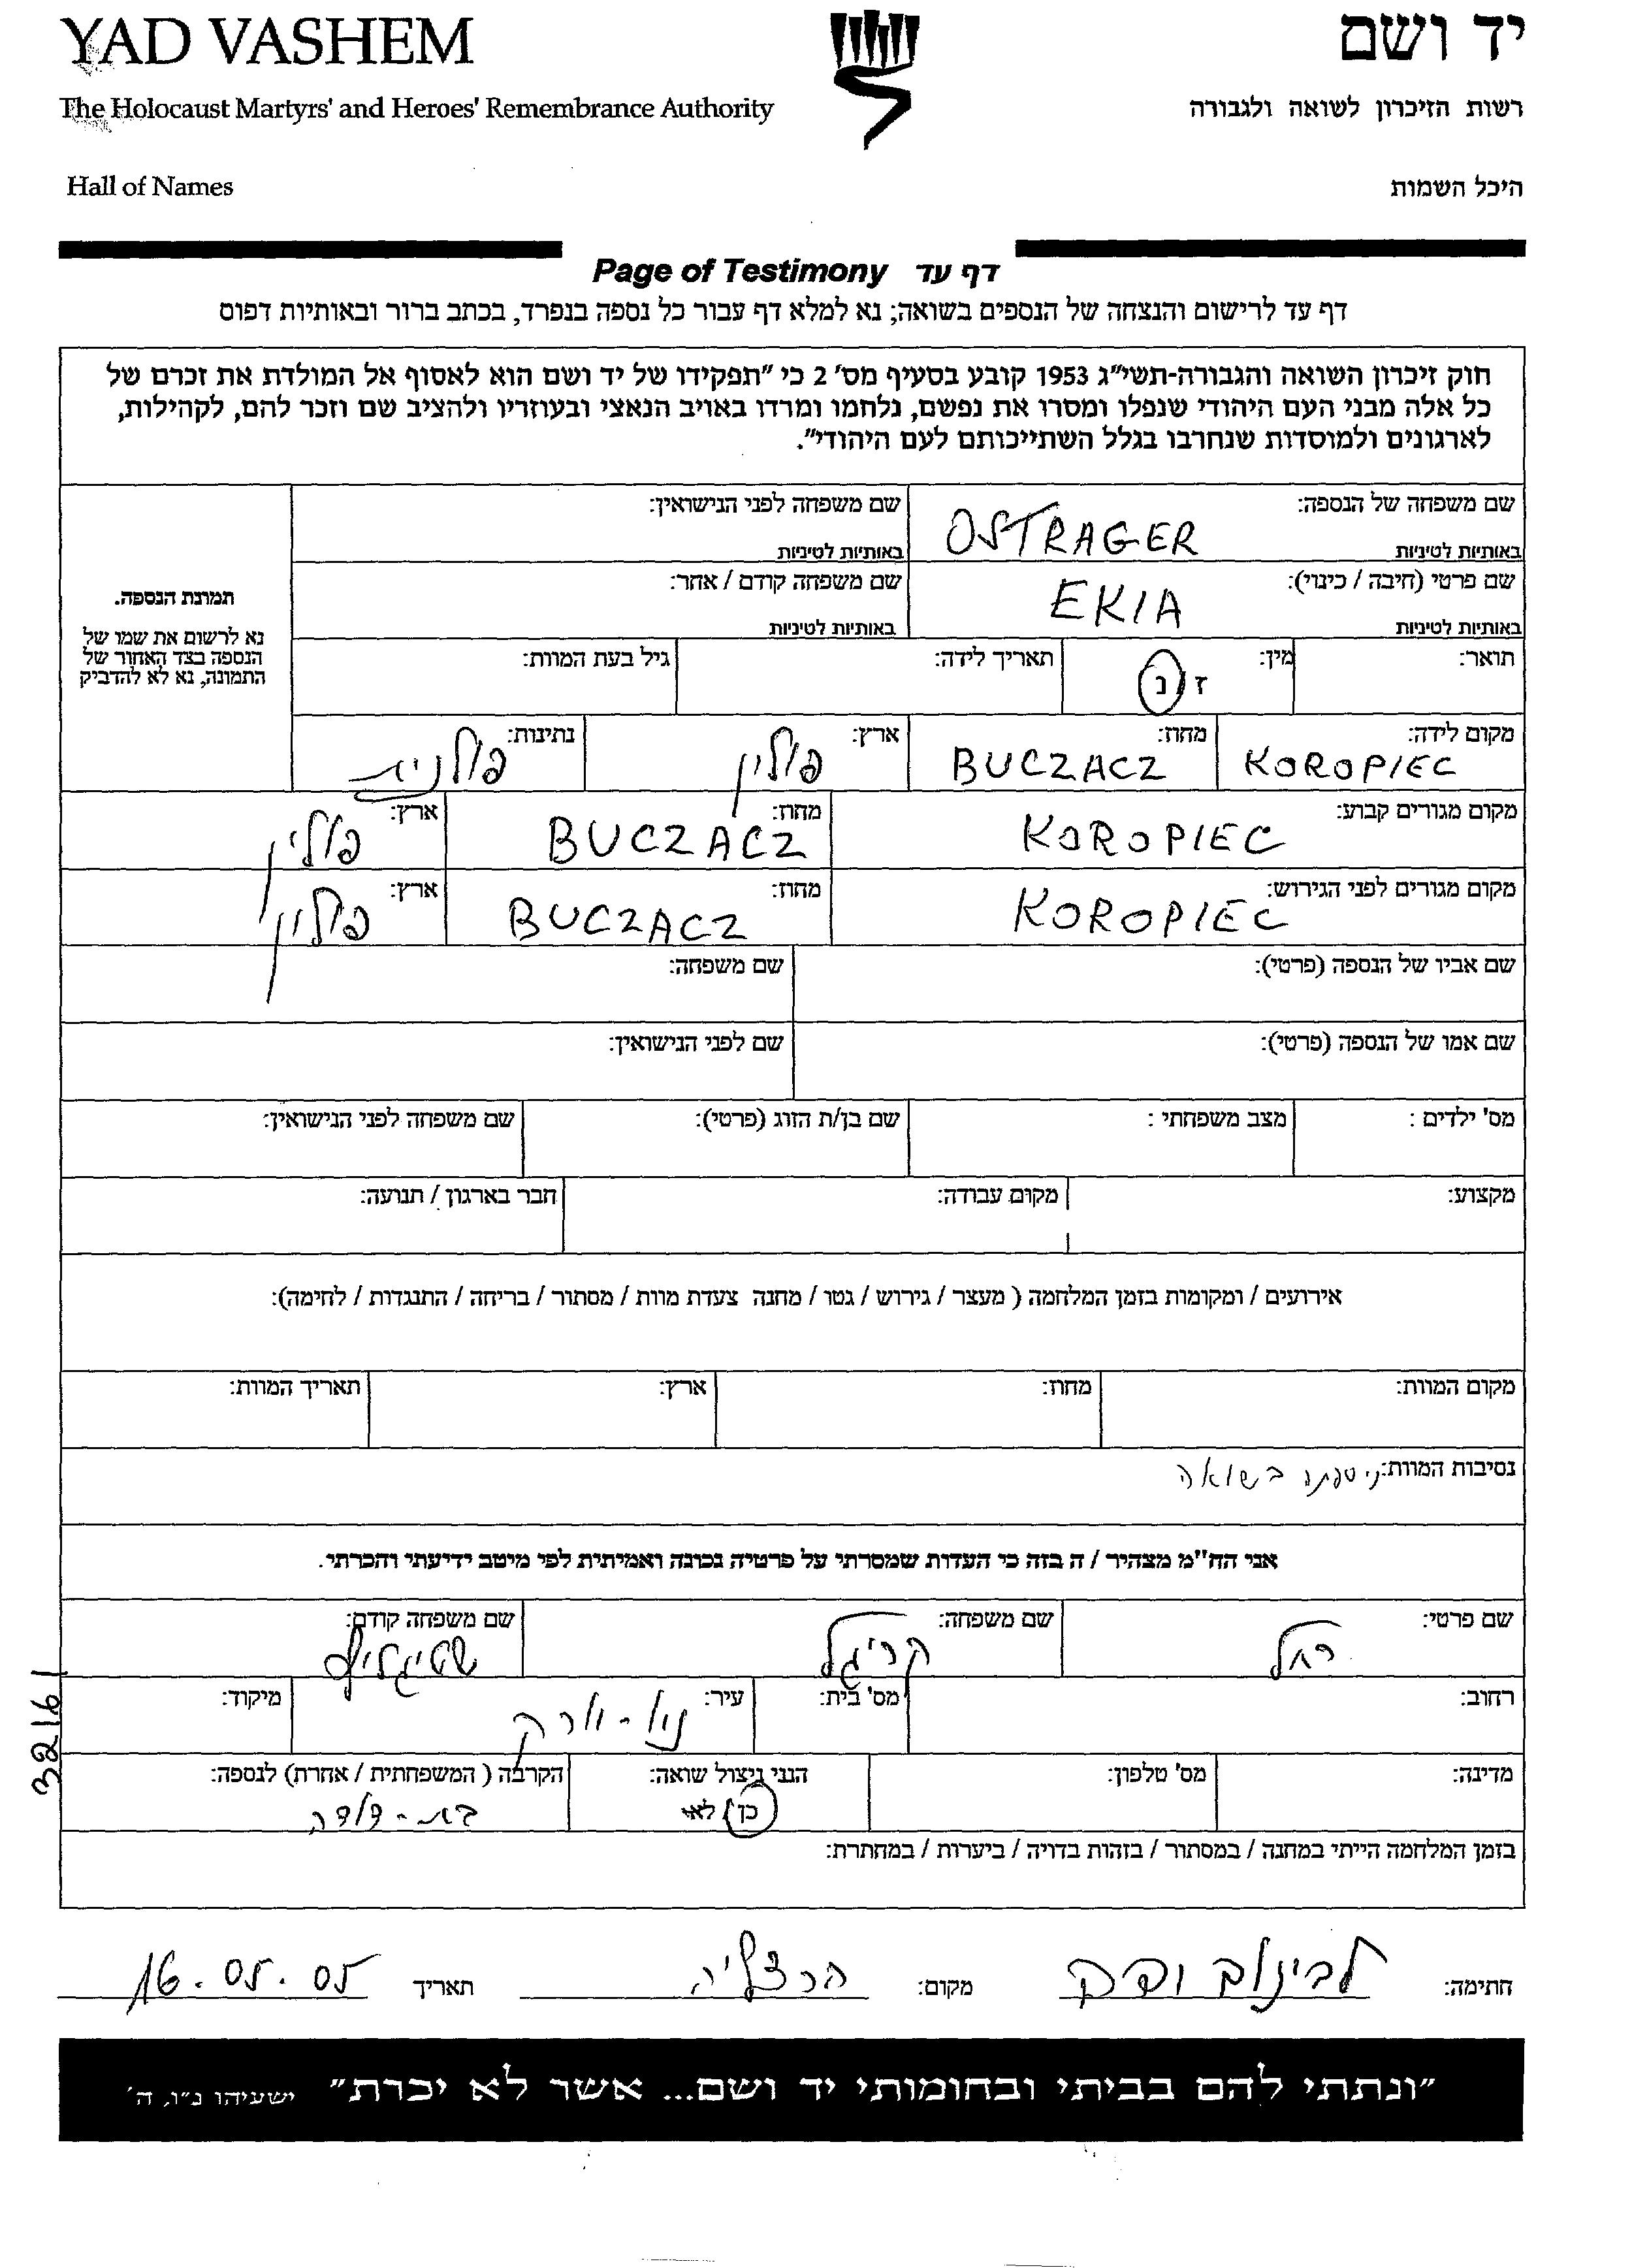 YAD VASHEM
יד ושם
The Holocaust Martyrs' and Heroes' Remembrance Authority
רשות הזיכרון לשואה ולגבורה
Hall of Names
היכל השמות
Page of Testimony דף עד
דף עד לרישום והנצחה של הנספים בשואה; נא למלא דף עבור כל נספה בנפרד, בכתב ברור ובאותיות דפוס
חוק זיכרון השואה והגבורה-תשי"ג 1953 קובע בסעיף מס' 2 כי "תפקידו של יד ושם הוא לאסוף אל המולדת את זכרם של
כל אלה מבני העם היהודי שנפלו ומסרו את נפשם, נלחמו ומרדו באויב הנאצי ובעוזריו ולהציב שם וזכר להם, לקהילות,
לארגונים ולמוסדות שנחרבו בגלל השתייכותם לעם היהודי".
שם משפחה של הנספה: OSTRAGER באותיות לטיניות
שם משפחה לפני הנישואין: באותיות לטיניות
שם פרטי (חיבה / כינוי): EKIA באותיות לטיניות
שם משפחה קודם / אחר: באותיות לטיניות
תמונת הנספה.
נא לרשום את שמו של
הנספה בצד האחור של
התמונה, נא לא להדביק
תואר: מין: ז / נ תאריך לידה: גיל בעת המוות:
מקום לידה: KOROPIEC מחוז: BUCZACZ ארץ: פולין נתינות: פולנית
מקום מגורים קבוע: KOROPIEC מחוז: BUCZACZ ארץ: פולין
מקום מגורים לפני הגירוש: KOROPIEC מחוז: BUCZACZ ארץ: פולין
שם אביו של הנספה (פרטי): שם משפחה:
שם אמו של הנספה (פרטי): שם לפני הנישואין:
מס' ילדים : מצב משפחתי : שם בן/ת הזוג (פרטי): שם משפחה לפני הנישואין:
מקצוע: מקום עבודה: חבר בארגון / תנועה:
אירועים / ומקומות בזמן המלחמה ( מעצר / גירוש / גטו / מחנה צעדת מוות / מסתור / בריחה / התנגדות / לחימה):
מקום המוות: מחוז: ארץ: תאריך המוות:
נסיבות המוות: ניספתה בשואה
אני הח"מ מצהיר / ה בזה כי העדות שמסרתי על פרטיה נכונה ואמיתית לפי מיטב ידיעתי והכרתי.
שם פרטי: רחל שם משפחה: קריגל שם משפחה קודם: שטיגליץ
רחוב: מס' בית: עיר: ניו-יורק מיקוד:
מדינה: מס' טלפון: הנני ניצול שואה: כן / לא הקרבה ( המשפחתית / אחרת) לנספה: בת-דודה
בזמן המלחמה הייתי במחנה / במסתור / בזהות בדויה / ביערות / במחתרת:
חתימה: מקום: הרצליה תאריך 16.05.05
"ונתתי להם בביתי ובחומותי יד ושם... אשר לא יכרת" ישעיהו נ"ו, ה'